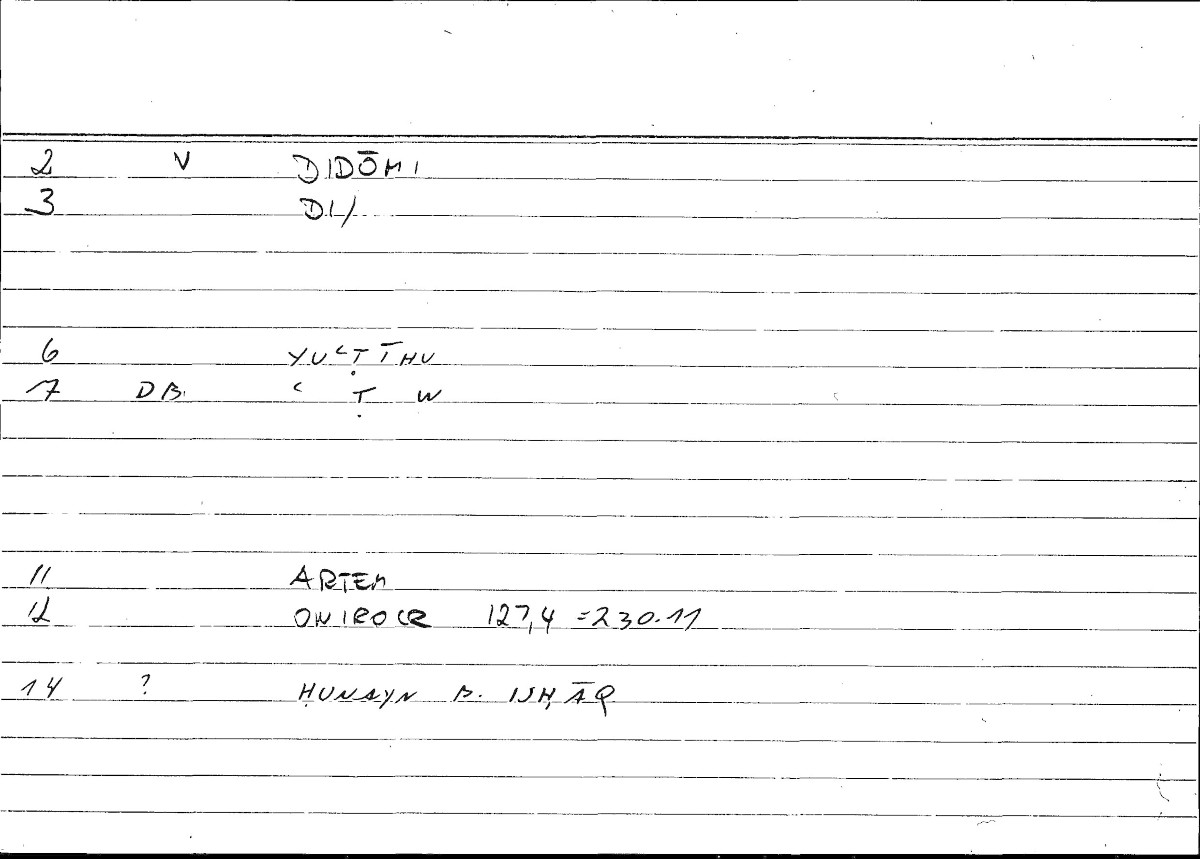 2 V DIDŌMI
3 DI/
6 YUʿṬĪHU
7 DB. ʿ Ṭ W
11 ARTEM
12 ONIROCR 127,4 =230.11
14 ? ḤUNAYN B. ISḤĀQ